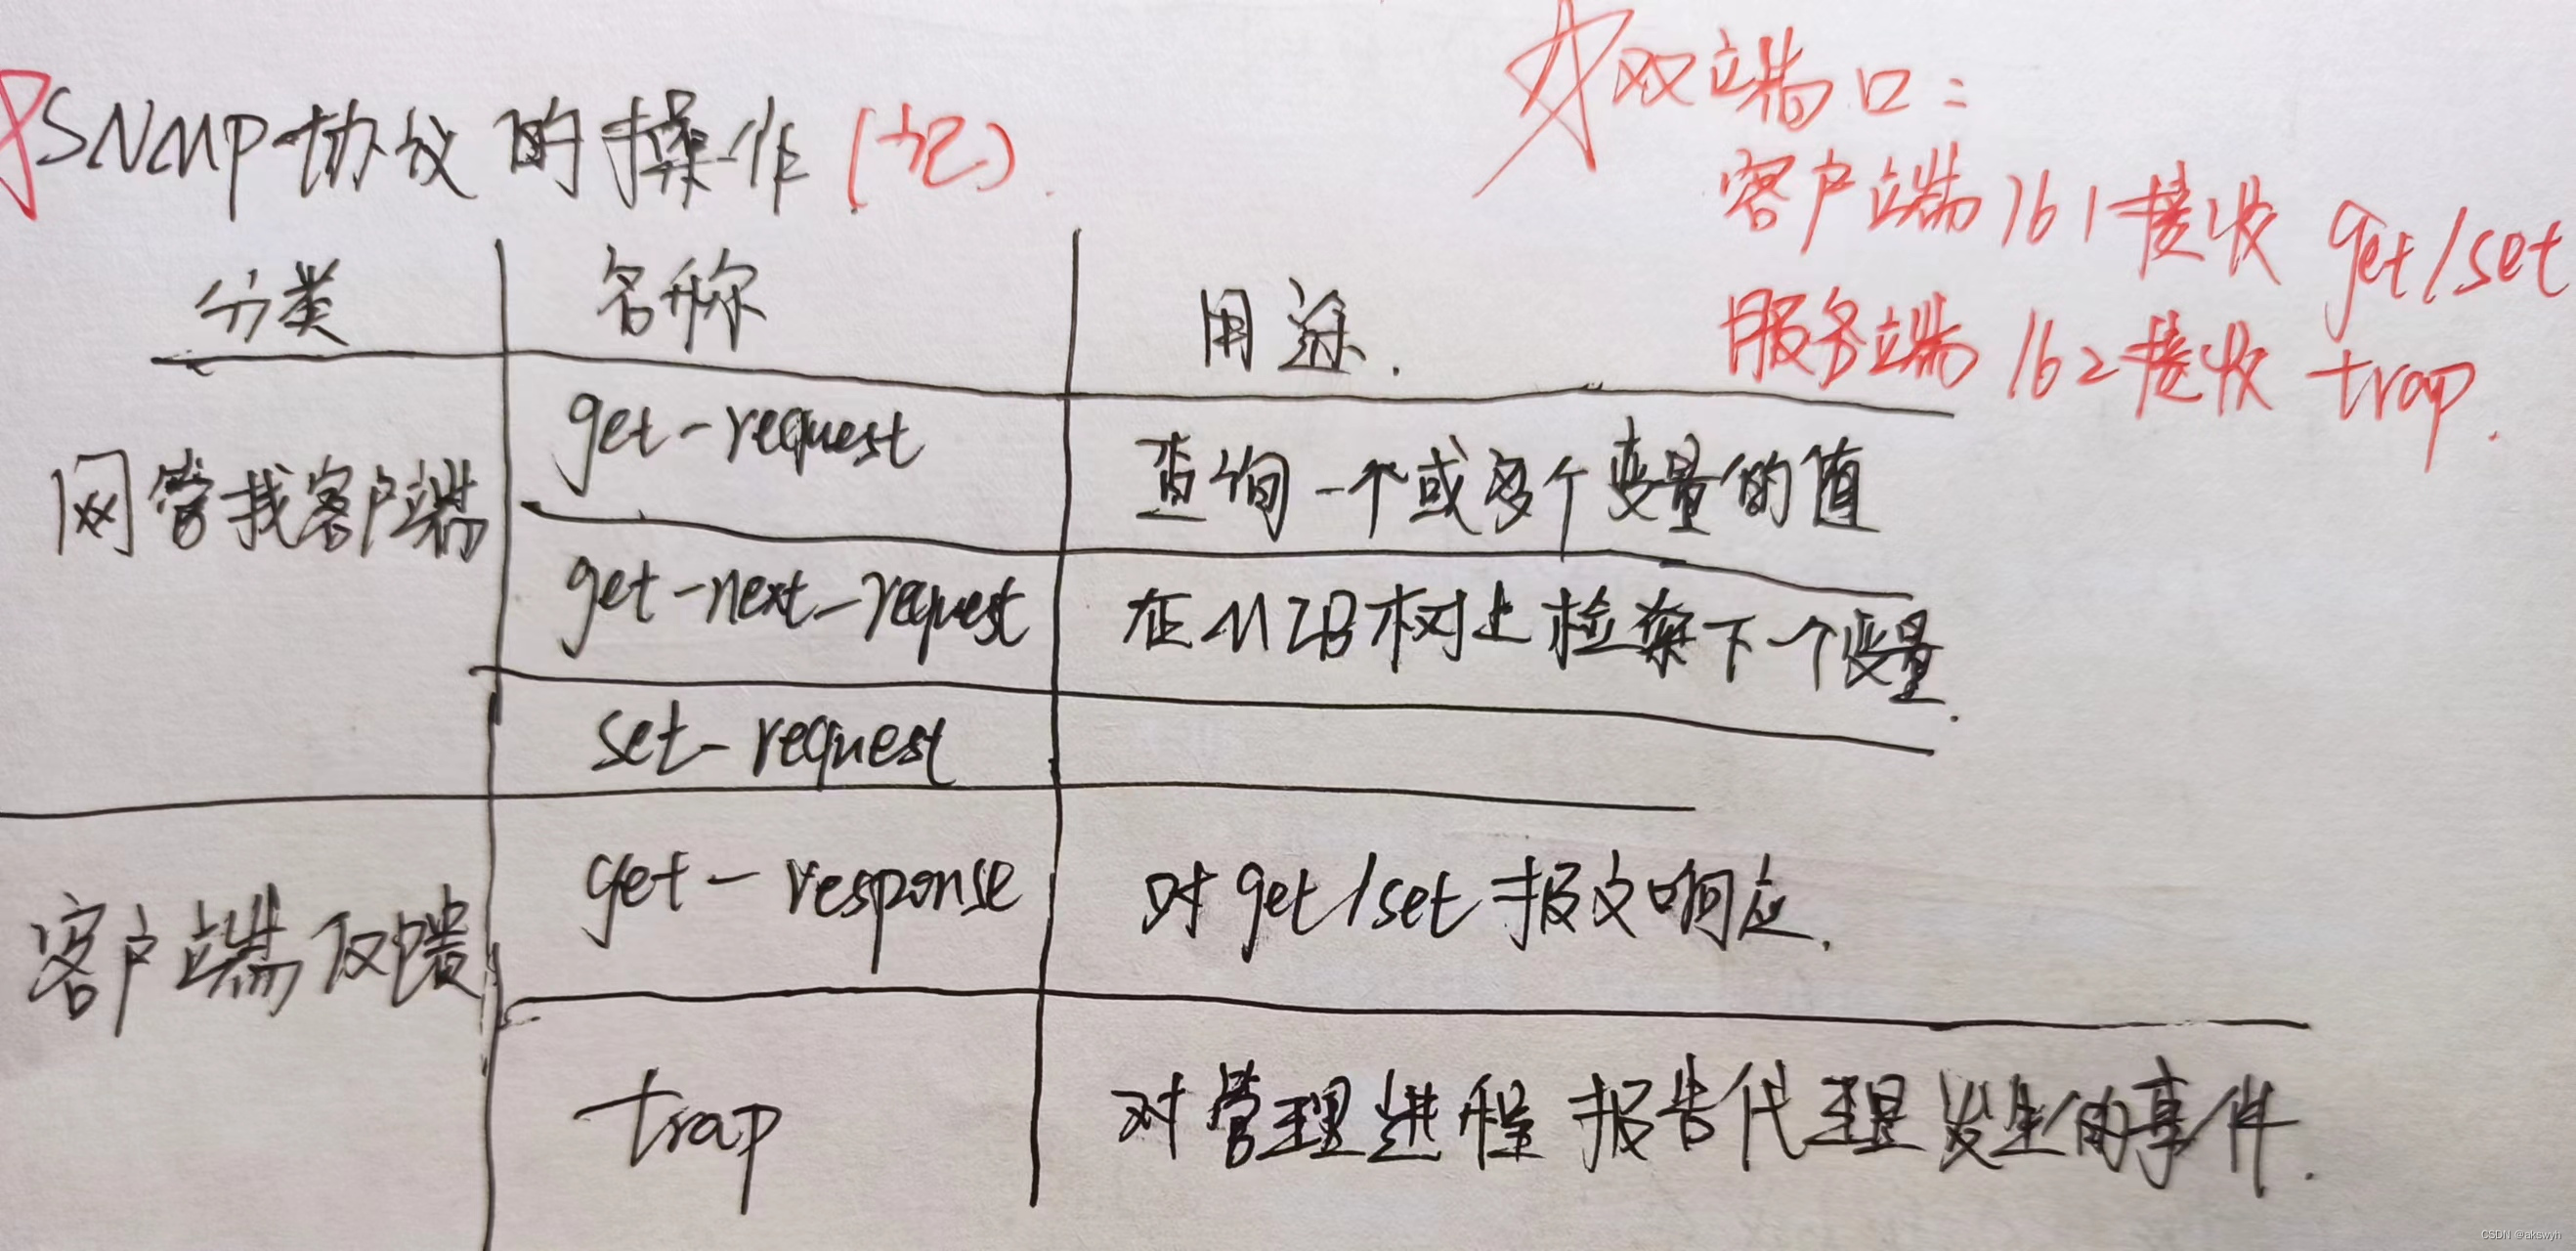 SNMP协议的操作(记)
☆双端口:
客户端161接收 get/set
服务端162接收 trap.
分类 名称 用途.
网管找客户端
get-request 查询一个或多个变量的值
get-next-request 在MIB树上检索下个变量.
set-request
客户端反馈
get-response 对get/set报文响应.
trap 对管理进程报告代理发生的事件.
CSDN @akswyh